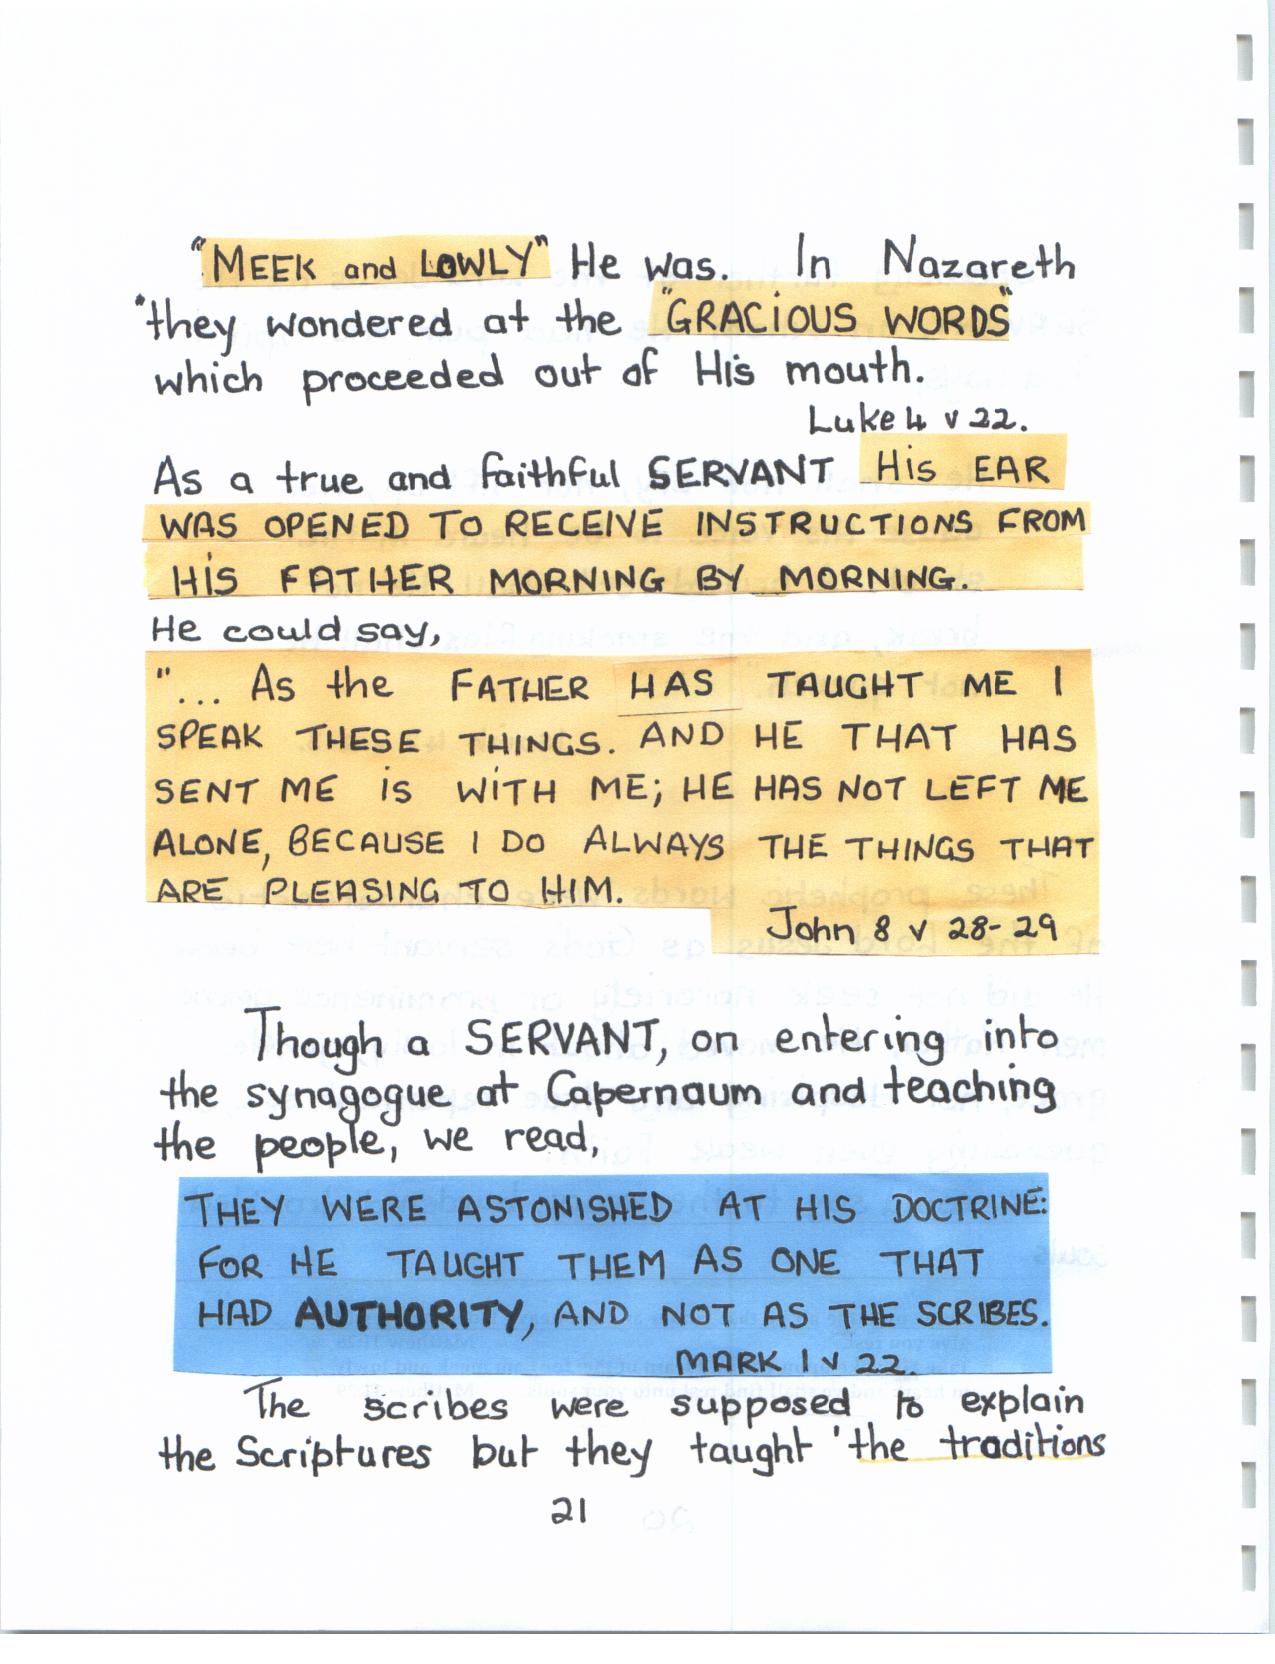 "MEEK and LOWLY" He was. In Nazareth
"they wondered at the "GRACIOUS WORDS"
which proceeded out of His mouth.
Luke 4 v 22.
As a true and faithful SERVANT His EAR
WAS OPENED TO RECEIVE INSTRUCTIONS FROM
HIS FATHER MORNING BY MORNING.
He could say,
"... As the FATHER HAS TAUGHT ME I
SPEAK THESE THINGS. AND HE THAT HAS
SENT ME is WITH ME; HE HAS NOT LEFT ME
ALONE, BECAUSE I DO ALWAYS THE THINGS THAT
ARE PLEASING TO HIM.
John 8 v 28-29
Though a SERVANT, on entering into
the synagogue at Capernaum and teaching
the people, we read,
THEY WERE ASTONISHED AT HIS DOCTRINE:
FOR HE TAUGHT THEM AS ONE THAT
HAD AUTHORITY, AND NOT AS THE SCRIBES.
MARK 1 v 22.
The scribes were supposed to explain
the Scriptures but they taught 'the traditions
21